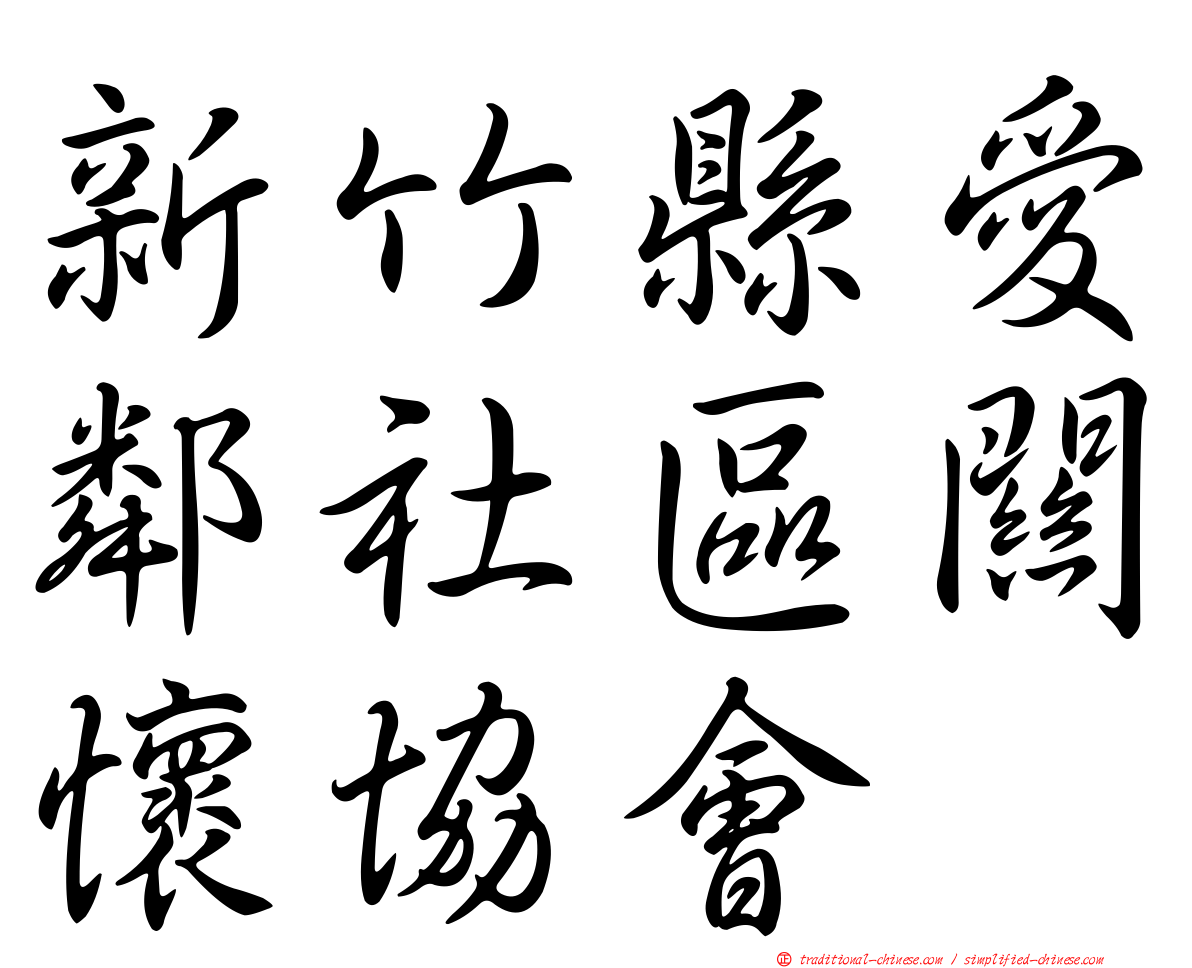 新竹縣愛
鄰社區關
懷協會
㊣ traditional-chinese.com / simplified-chinese.com